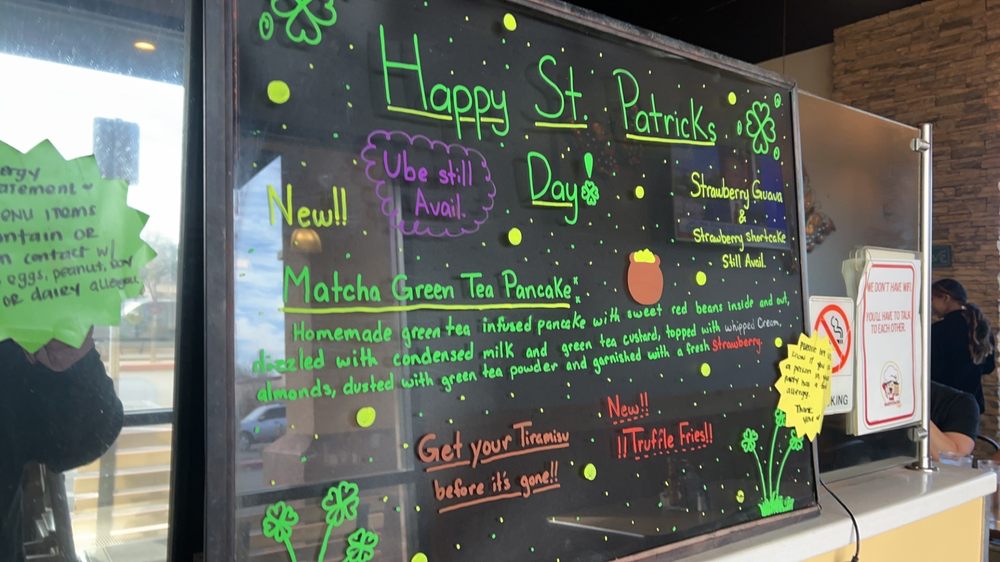 Happy St. Patricks
Day!
Ube still
Avail.
New!!
Strawberry Guava
&
Strawberry shortcake
Still Avail.
Matcha Green Tea Pancake
Homemade green tea infused pancake with sweet red beans inside and out,
dazzled with condensed milk and green tea custard, topped with whipped Cream,
almonds, dusted with green tea powder and garnished with a fresh Strawberry.
Get your Tiramisu
before it's gone!!
New!!
!!Truffle Fries!!
ergy
atement
ENU items
ontain OR
n contact w/
eggs, peanut, soy
OR dairy allergen
Please let us
know if you or
a person in your
party has a food
allergy.
Thank
you
KING
WE DON'T HAVE WIFI,
YOU'LL HAVE TO TALK
TO EACH OTHER.